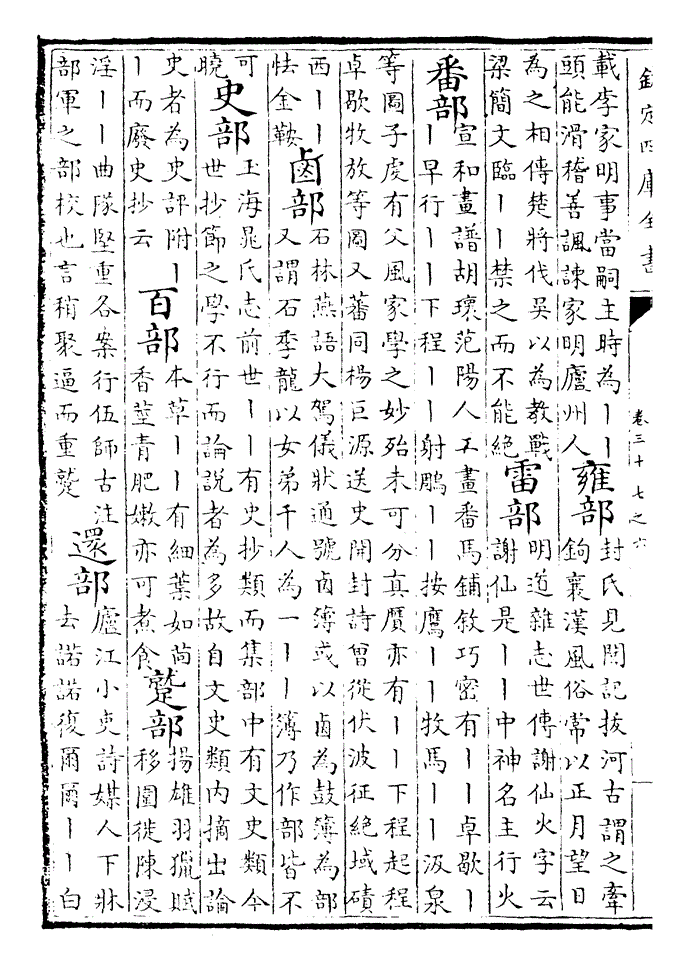 欽定四庫全書
卷三十七之六
載李家明事當嗣主時為丨丨
頭能滑稽善諷諫家明廬州人
雍部
封氏見聞記拔河古謂之牽
鉤襄漢風俗常以正月望日
為之相傳楚將伐吳以為教戰
梁簡文臨丨丨禁之而不能絕
雷部
明道雜志世傳謝仙火字云
謝仙是丨丨中神名主行火
番部
宣和畫譜胡瓌范陽人工畫番馬鋪敘巧密有丨丨卓歇丨
丨早行丨丨下程丨丨射鵰丨丨按鷹丨丨牧馬丨丨汲泉
等圖子虔有父風家學之妙殆未可分真贗亦有丨丨下程起程
卓歇牧放等圖又蕃同楊巨源送史開封詩曾從伏波征絕域磧
西丨丨
怯金鞍
鹵部
石林燕語大駕儀狀通號鹵簿或以鹵為鼓簿為部
又謂石季龍以女弟千人為一丨丨簿乃作部皆不
可
曉
史部
玉海晁氏志前世丨丨有史抄類而集部中有文史類今
世抄節之學不行而論說者為多故自文史類內摘出論
史者為史評附丨
丨而廢史抄云
百部
本草丨丨有細葉如茴
香莖青肥嫩亦可煮食
蹵部
揚雄羽獵賦
移圍徙陳浸
淫丨丨曲隊堅重各案行伍師古注
部軍之部校也言稍聚逼而重蹵
還部
廬江小吏詩媒人下牀
去諾諾復爾爾丨丨白